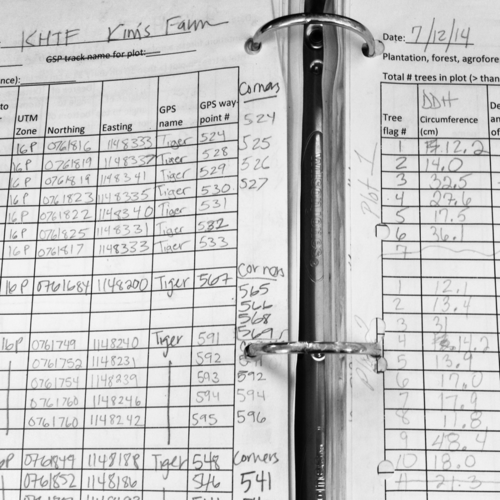 KHTF Kim's Farm
GSP track name for plot:
Corners
UTM Zone Northing Easting GPS name GPS way-point #
16P 0761816 1148333 Tiger 524 524
16P 0761819 1148337 Tiger 528 525
16P 0761819 1148341 Tiger 529 526
16P 0761823 1148335 Tiger 530 527
16P 0761822 1148340 Tiger 531
16P 0761825 1148331 Tiger 532
16P 0761817 1148333 Tiger 533
Corners
16P 0761684 1148200 Tiger 567 565
566
568
569
16P 0761749 1148240 Tiger 591
0761752 1148231 592 591
0761754 1148239 593 592
0761760 1148246 594 594
0761760 1148242 595 596
0761849 1148188 Tiger 548 Corners
0761852 1148186 546 541
Date: 7/12/14
Plantation, forest, agrofore
Total # trees in plot (> than
Tree flag # DDH Circumference (cm)
1 12.2
2 14.0
3 32.5
4 27.6
5 17.5
6 36.1
7
Plot 1
1 12.1
2 13.4
3 31
4 14.2
5 13.9
6 17.0
7 17.9
8 11.8
9 48.4
10 18.0
11 21.3